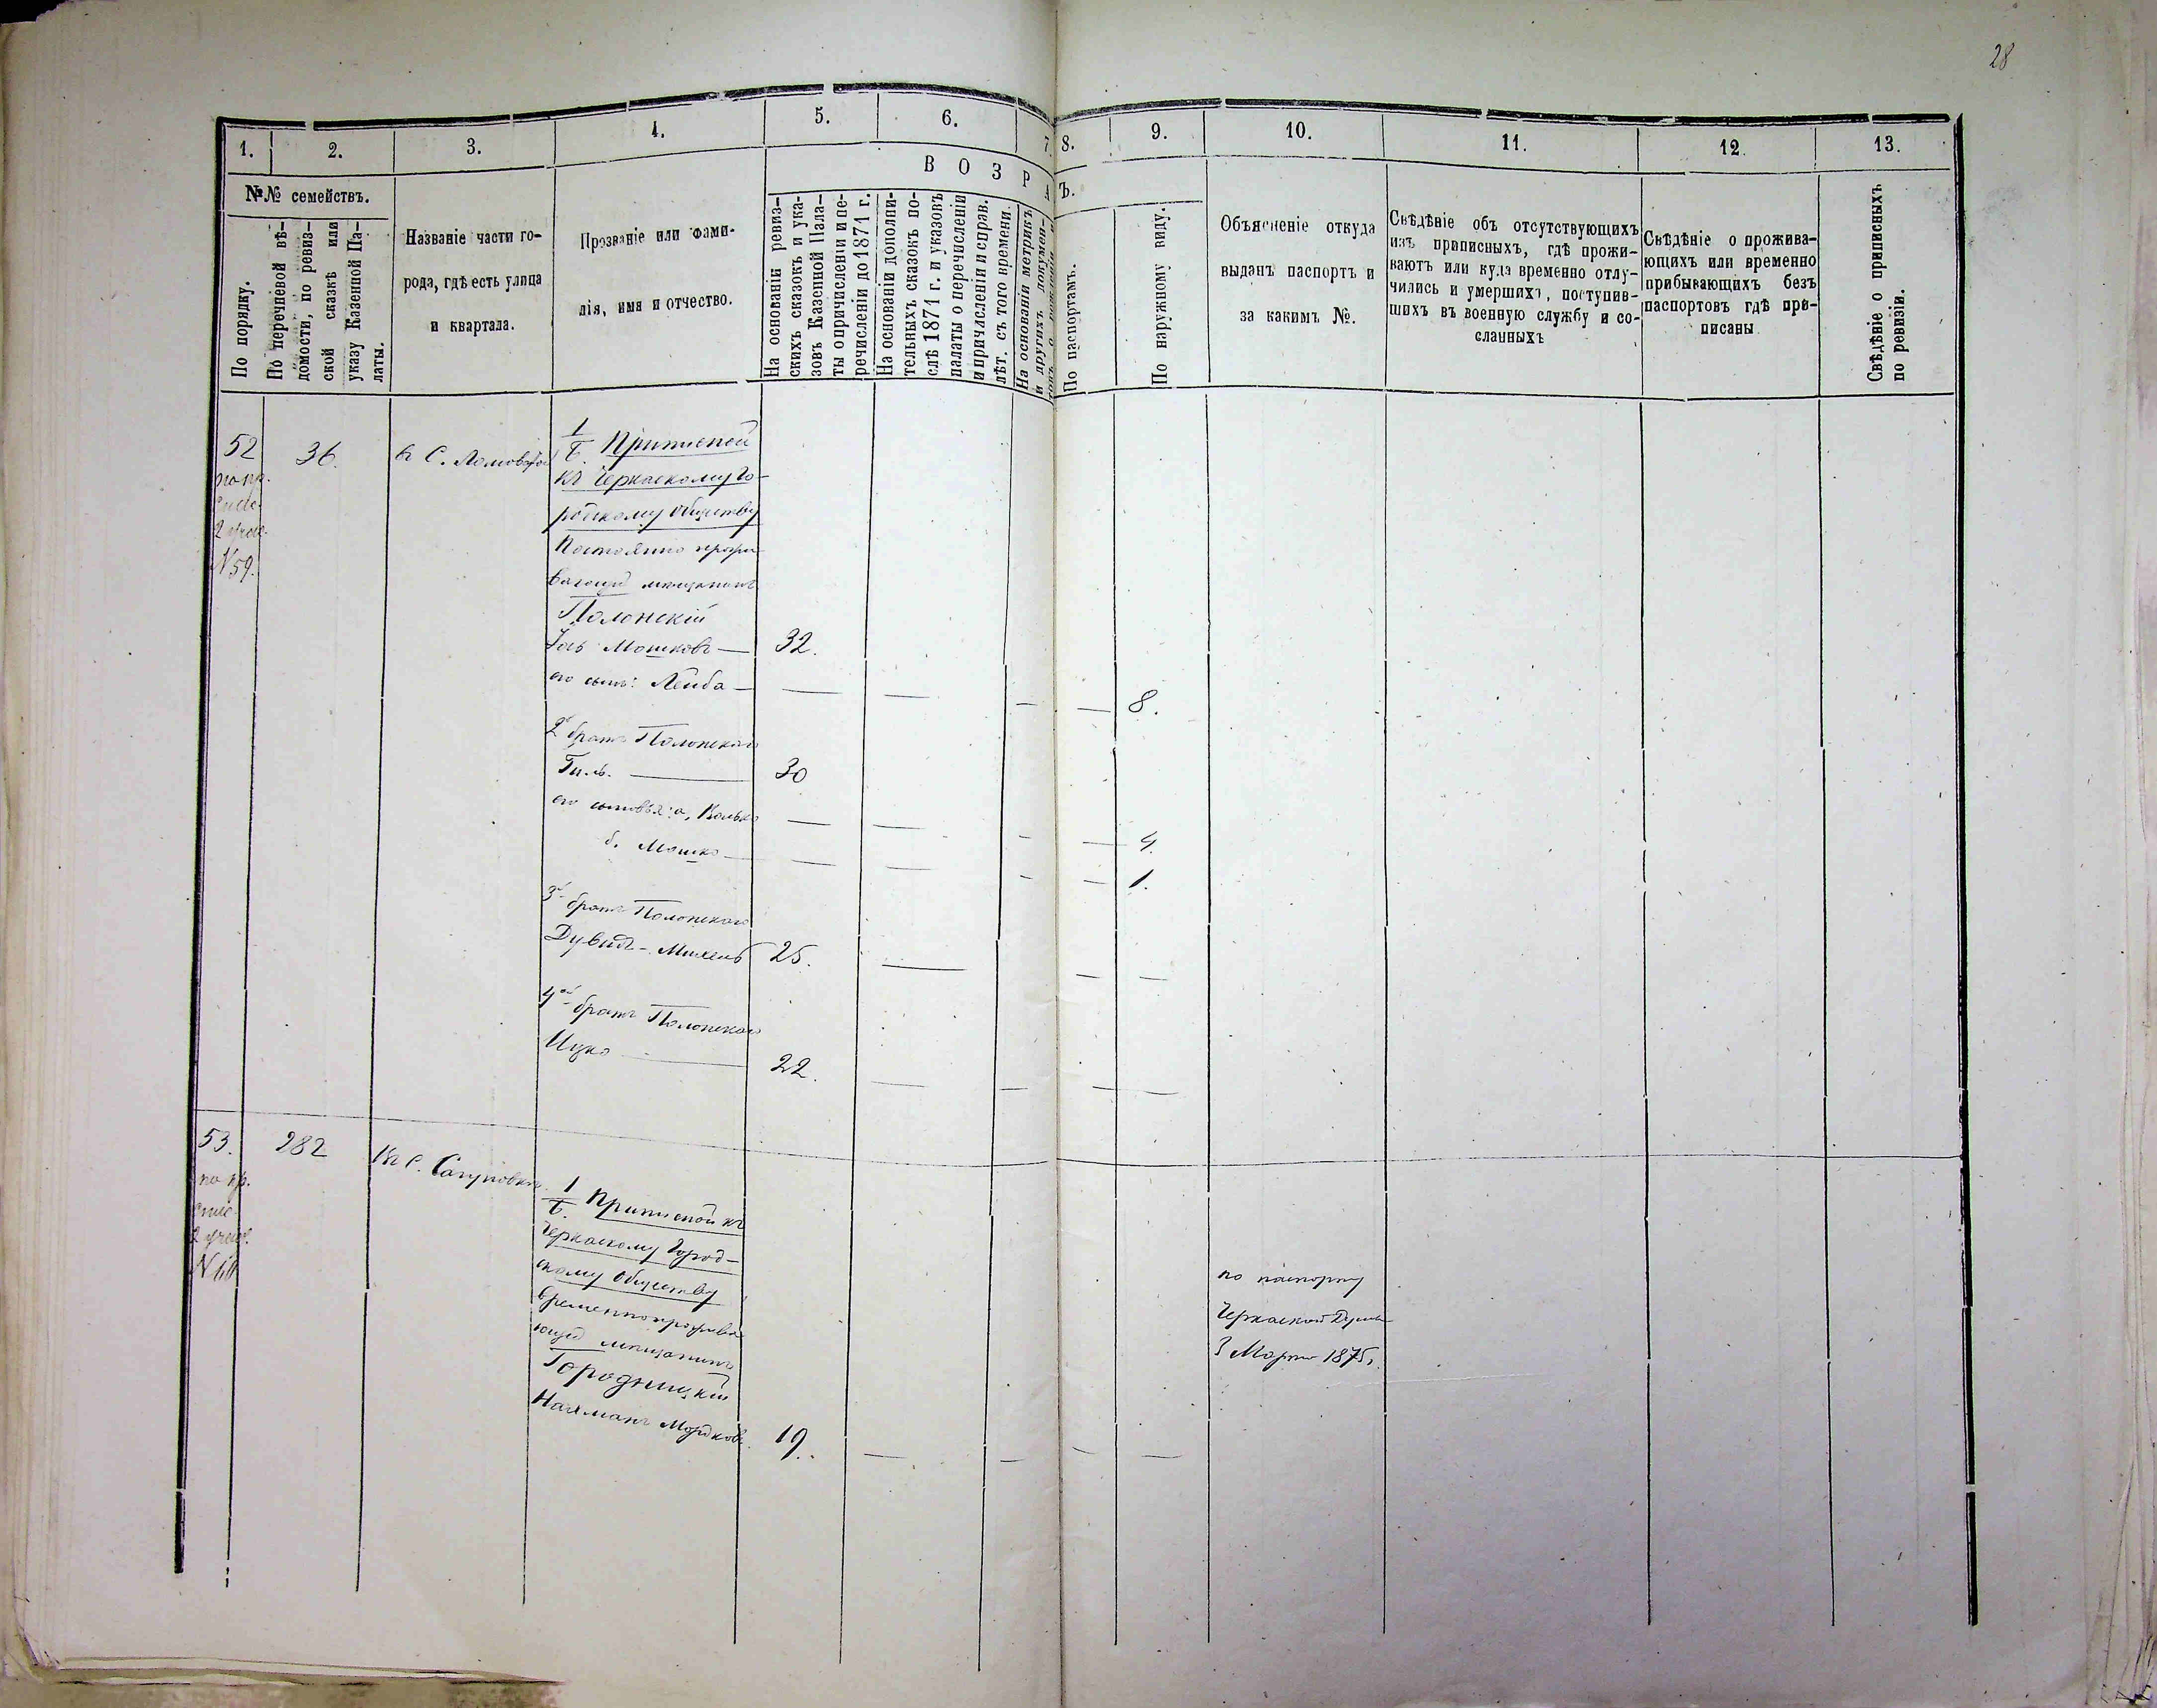 28
1.
2.
3.
4.
5.
6.
7
8.
9.
10.
11.
12.
13.
№№ семействъ.
ВОЗРА
Ъ.
По порядку.
По перечневой вѣ-
домости, по ревиз-
ской сказкѣ или
указу Казенной Па-
латы.
Названіе части го-
рода, гдѣ есть улица
и квартала.
Прозваніе или фами-
лія, имя и отчество.
На основаніи ревиз-
скихъ сказокъ и ука-
зовъ Казенной Пала-
ты о причисленіи и пе-
речисленіи до 1871 г.
На основаніи дополни-
тельныхъ сказокъ по-
слѣ 1871 г. и указовъ
палаты о перечисленіи
и причисленіи и справ.
лѣт. съ того времени.
На основаніи метрикъ
и другихъ докумен-
По паспортамъ.
По наружному виду.
Объясненіе откуда
выданъ паспортъ и
за какимъ №.
Свѣдѣніе объ отсутствующихъ
изъ приписныхъ, гдѣ прожи-
ваютъ или куда временно отлу-
чились и умершихъ, поступив-
шихъ въ военную службу и со-
сланныхъ
Свѣдѣніе о прожива-
ющихъ или временно
прибывающихъ безъ
паспортовъ гдѣ при-
писаны
Свѣдѣніе о приписныхъ
по ревизіи.
52
по пр.
2
N 59.
36.
в С.
1
Б. Приписной
къ Черкаскому Го-
родскому Обществу
Постоянно прожи
вающій мещанинъ
Полонскій
Іось Мошковъ — 32.
его сынъ: Лейба — 8.
2й братъ Полонскаго
30
его сыновья: а,
4.
б. Мошко — 1.
3й братъ Полонскаго
Дувидъ-Михель 25.
4й братъ Полонскаго
Ицко — 22.
53.
по пр.
2
282
Въ С. Сагуновки
1
Б. Приписной къ
Черкаскому Город-
скому Обществу
временно прожива
ющій мещанинъ
Городницкій
Нахманъ Мордков. 19.
по паспорту
Черкаской Думы
3 Марта 1875,